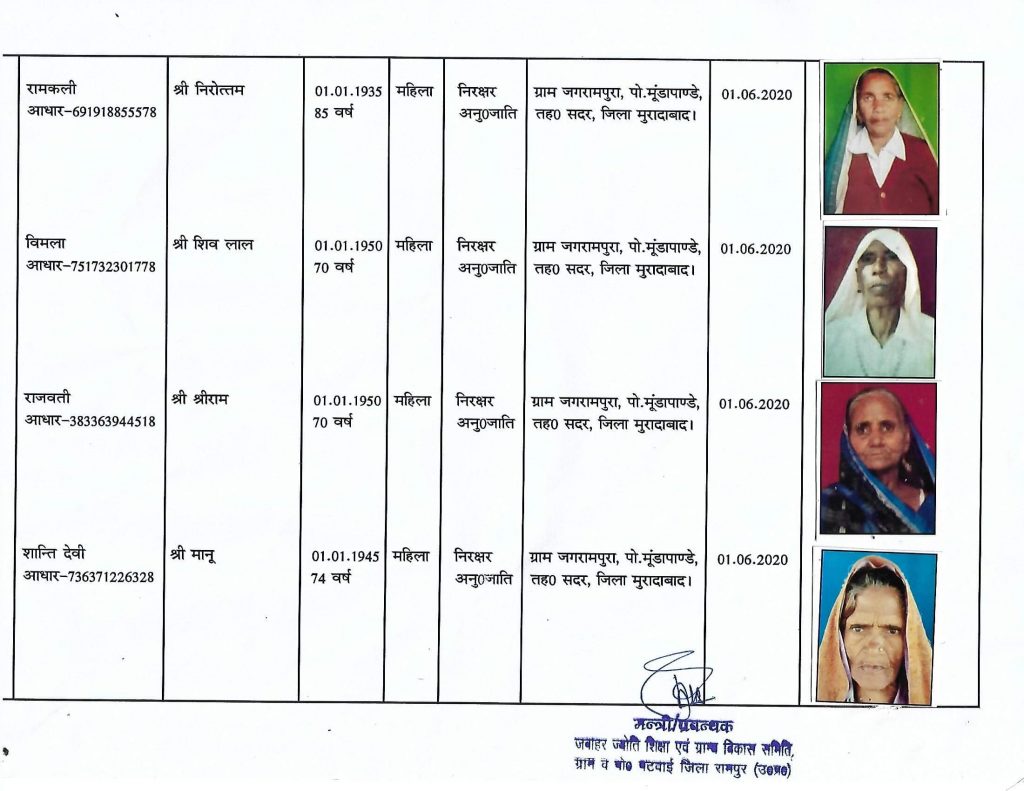 रामकली श्री निरोत्तम 01.01.1935 महिला निरक्षर ग्राम जगरामपुरा, पो.मूंडापाण्डे, 01.06.2020
आधार–691918855578 85 वर्ष अनु0जाति तह0 सदर, जिला मुरादाबाद।
विमला श्री शिव लाल 01.01.1950 महिला निरक्षर ग्राम जगरामपुरा, पो.मूंडापाण्डे, 01.06.2020
आधार–751732301778 70 वर्ष अनु0जाति तह0 सदर, जिला मुरादाबाद।
राजवती श्री श्रीराम 01.01.1950 महिला निरक्षर ग्राम जगरामपुरा, पो.मूंडापाण्डे, 01.06.2020
आधार–383363944518 70 वर्ष अनु0जाति तह0 सदर, जिला मुरादाबाद।
शान्ति देवी श्री मानू 01.01.1945 महिला निरक्षर ग्राम जगरामपुरा, पो.मूंडापाण्डे, 01.06.2020
आधार–736371226328 74 वर्ष अनु0जाति तह0 सदर, जिला मुरादाबाद।
मन्त्री/प्रबन्धक
जवाहर ज्योति शिक्षा एवं ग्राम्य विकास समिति,
ग्राम व पो0 पटवाई जिला रामपुर (उ0प्र0)